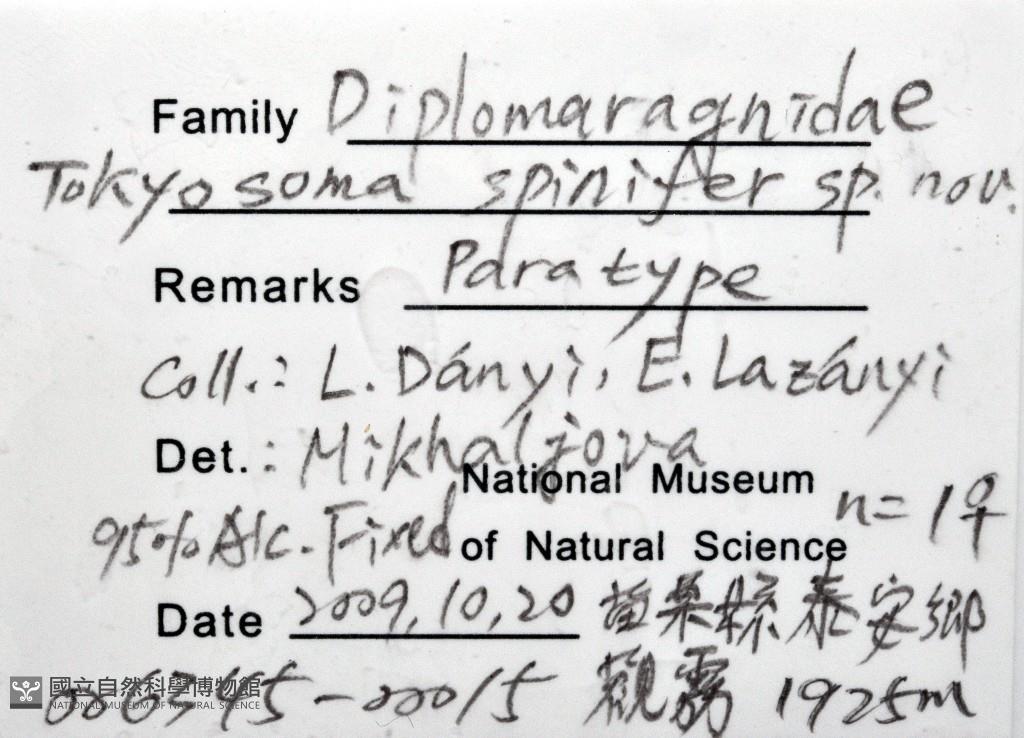 Family Diplomaragnidae
Tokyosoma spinifer sp. nov.
Remarks Paratype
Coll.: L. Dányi, E. Lazányi
Det.: Mikhaljova
National Museum
n= 1♀
95% Alc. Fixed of Natural Science
Date 2009,10,20 苗栗縣泰安鄉
-00015 觀霧 1925m
國立自然科學博物館
NATIONAL MUSEUM OF NATURAL SCIENCE